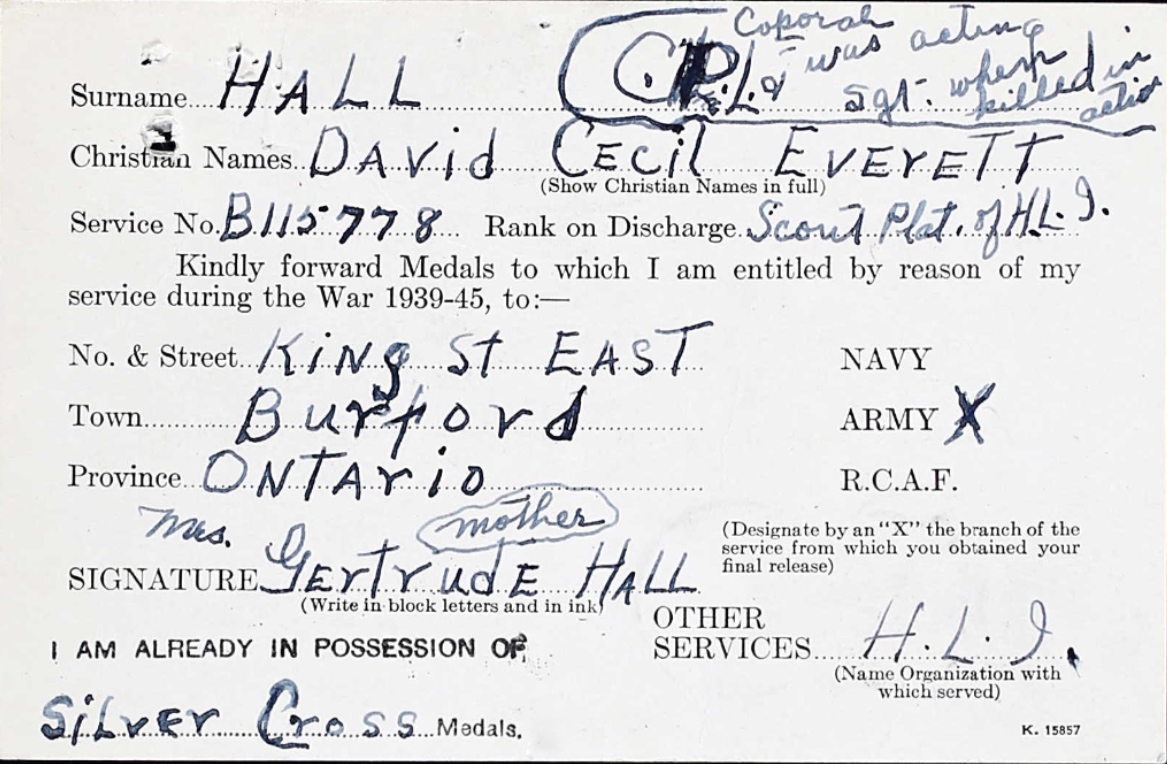 Coporal
Cpl. & was acting
Sgt. when
killed in
action
Surname HALL
Christian Names DAVid CECil EVErETT
(Show Christian Names in full)
Service No. B115778 Rank on Discharge Scout Plat. of H.L.I.
Kindly forward Medals to which I am entitled by reason of my
service during the War 1939-45, to:—
No. & Street KiNg St EAST NAVY
Town Burford ARMY X
Province ONTAriO R.C.A.F.
Mrs. mother
(Designate by an "X" the branch of the
service from which you obtained your
final release)
SIGNATURE GErtrudE HALL
(Write in block letters and in ink)
OTHER
SERVICES H.L.I.
(Name Organization with
which served)
I AM ALREADY IN POSSESSION OF
SiLvEr Cross Medals.
K. 15857